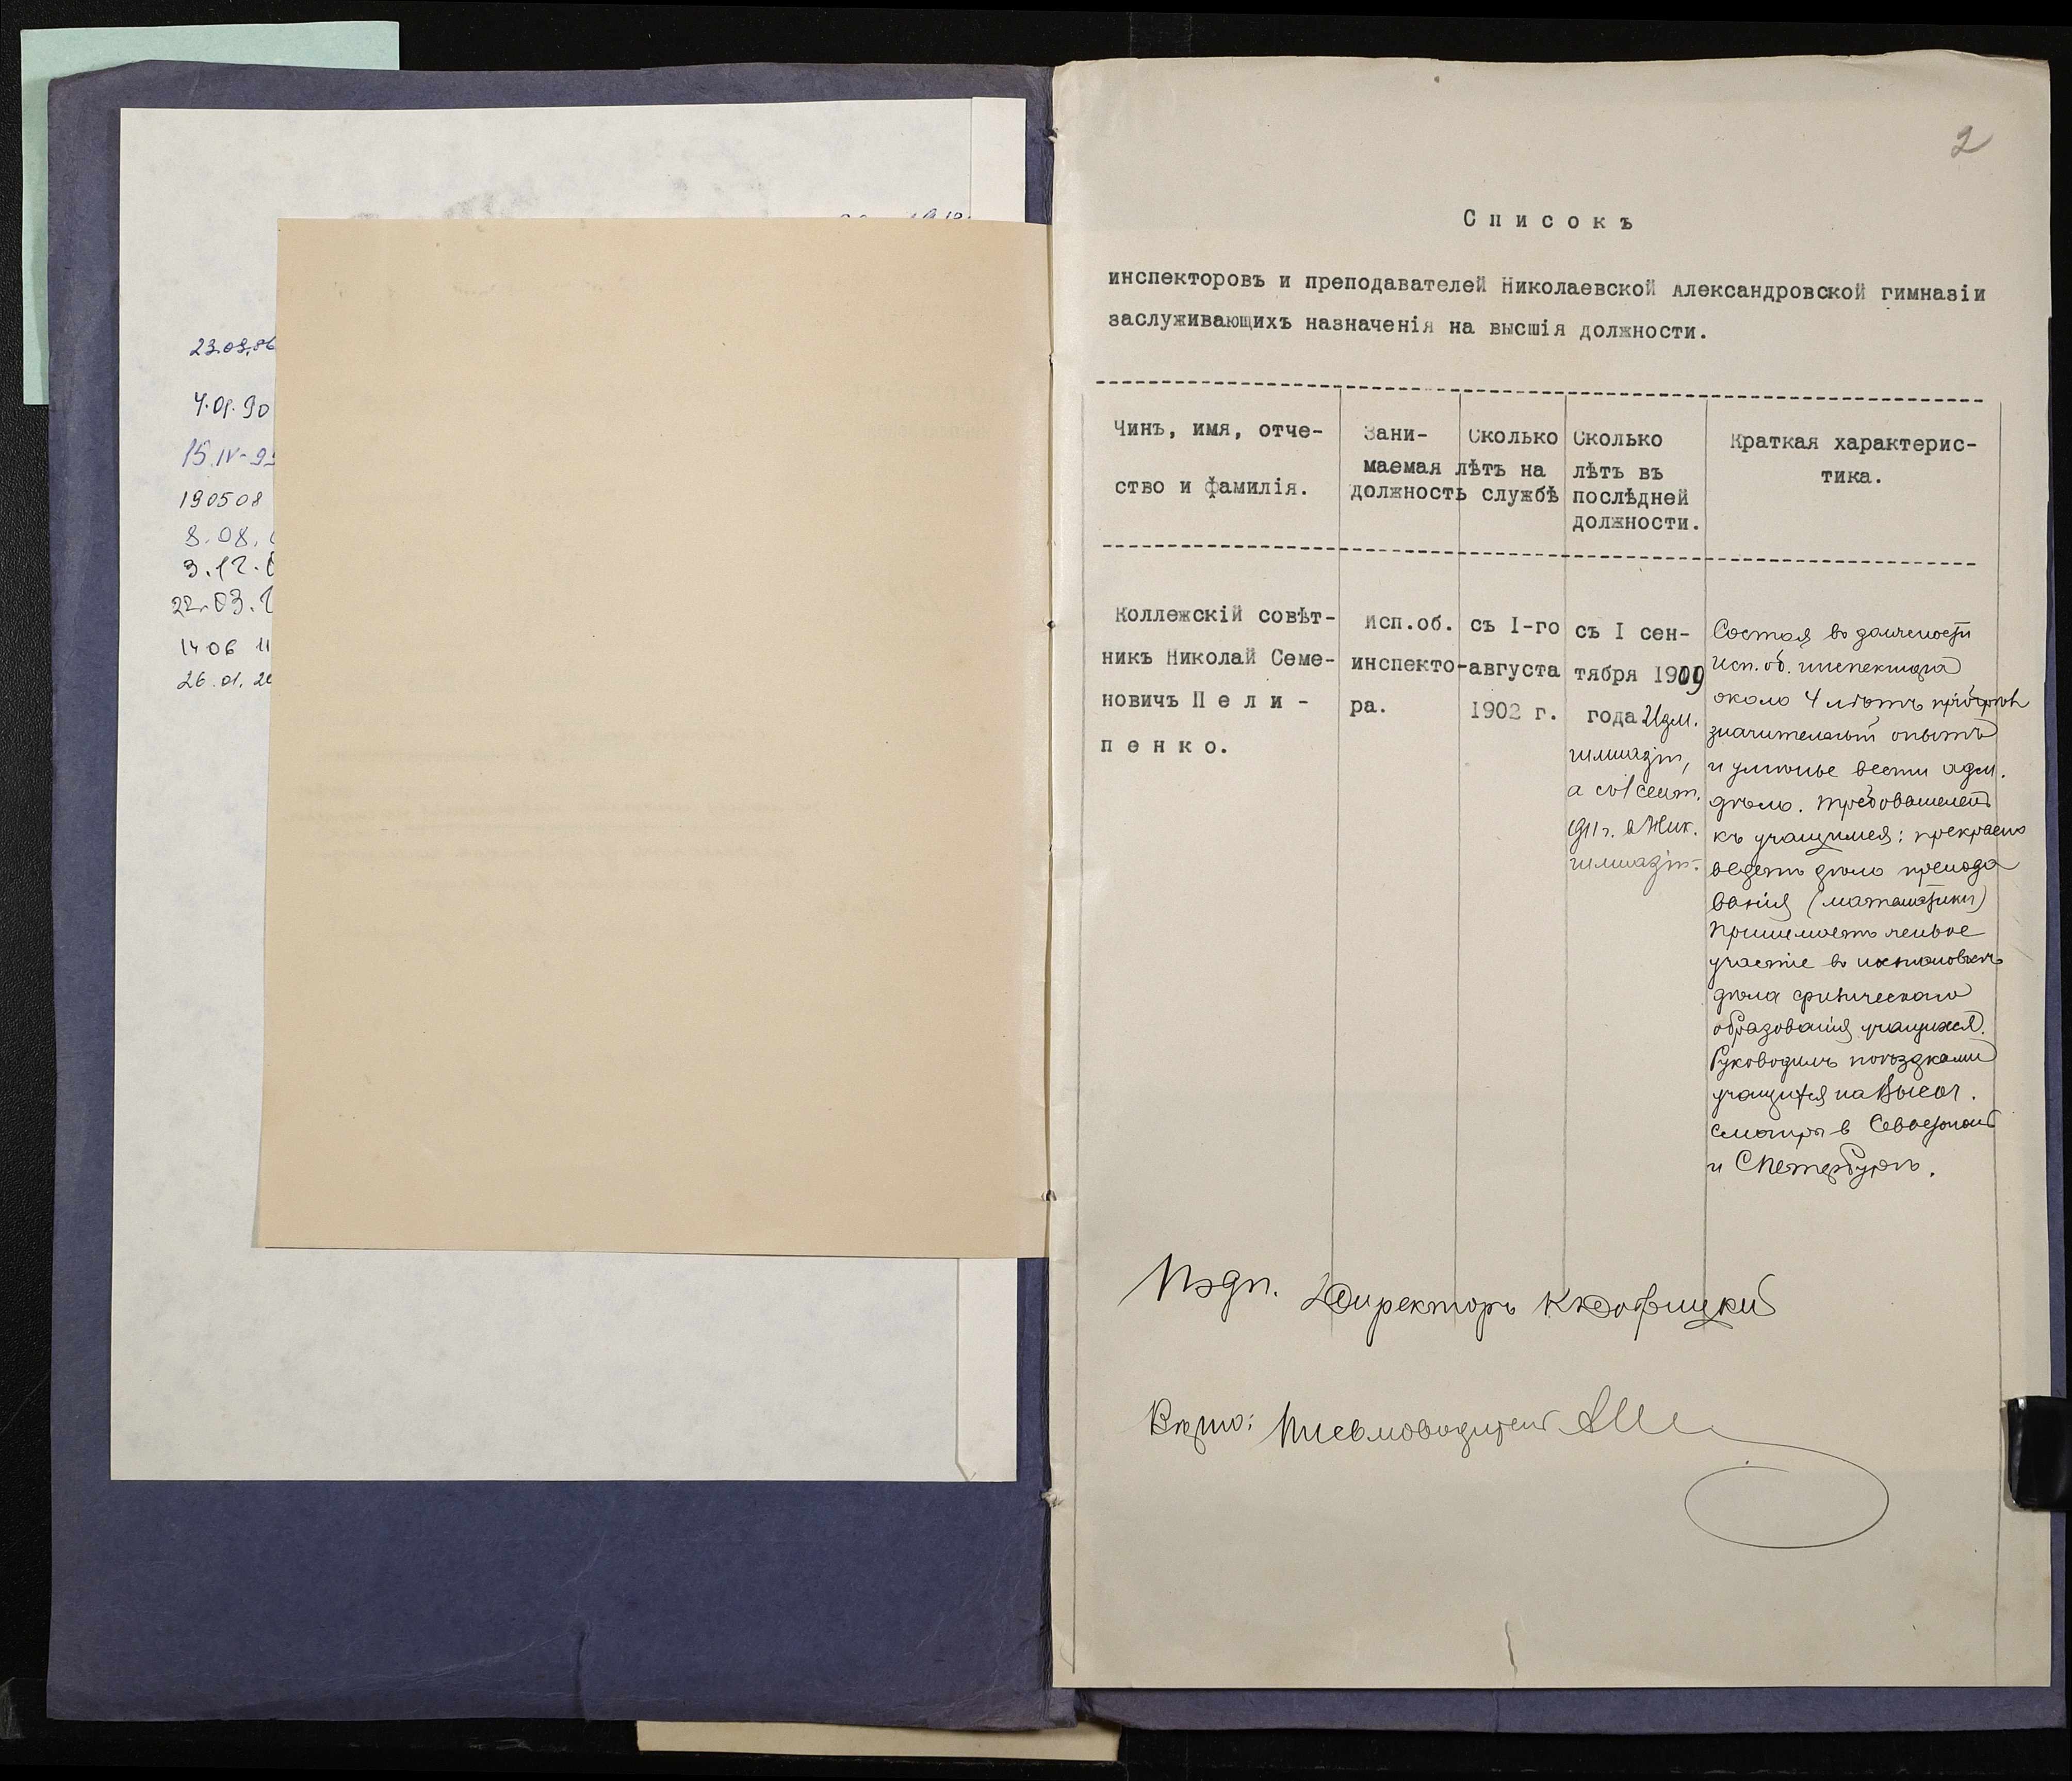 23.09.86
4.01.90
15.IV-9
190508
8.08.
3.12.
22.03.1
1406 11
26.01.20
2
Списокъ
инспекторовъ и преподавателей Николаевской Александровской гимназіи
заслуживающихъ назначенія на высшія должности.
Чинъ, имя, отче-
ство и фамилія.
Зани-
маемая
должность
Сколько
лѣтъ на
службѣ
Сколько
лѣтъ въ
послѣдней
должности.
Краткая характерис-
тика.
Коллежскій совѣт-
никъ Николай Семе-
новичъ Пели-
пенко.
Исп.об.
инспекто-
ра.
съ I-го
августа
1902 г.
съ I сен-
тября 1909
года Изм.
гимназіи,
а съ 1 сент.
1911 г. в Ник.
гимназіи.
Состоя въ должности
исп. об. инспектора
около 4 лѣтъ пріобрѣлъ
значительный опытъ
и умѣнье вести адм.
дѣло. Требователенъ
къ учащимся; прекрасно
ведетъ дѣло препода
ванія (математики)
Принимаетъ живое
участіе в
дѣла физическаго
образованія учащихся.
Руководилъ поѣздками
учащихся на Высоч.
смотры в Севастополь
и СПетербургъ.
Подп. Директоръ К
Вѣрно: Письмоводитель